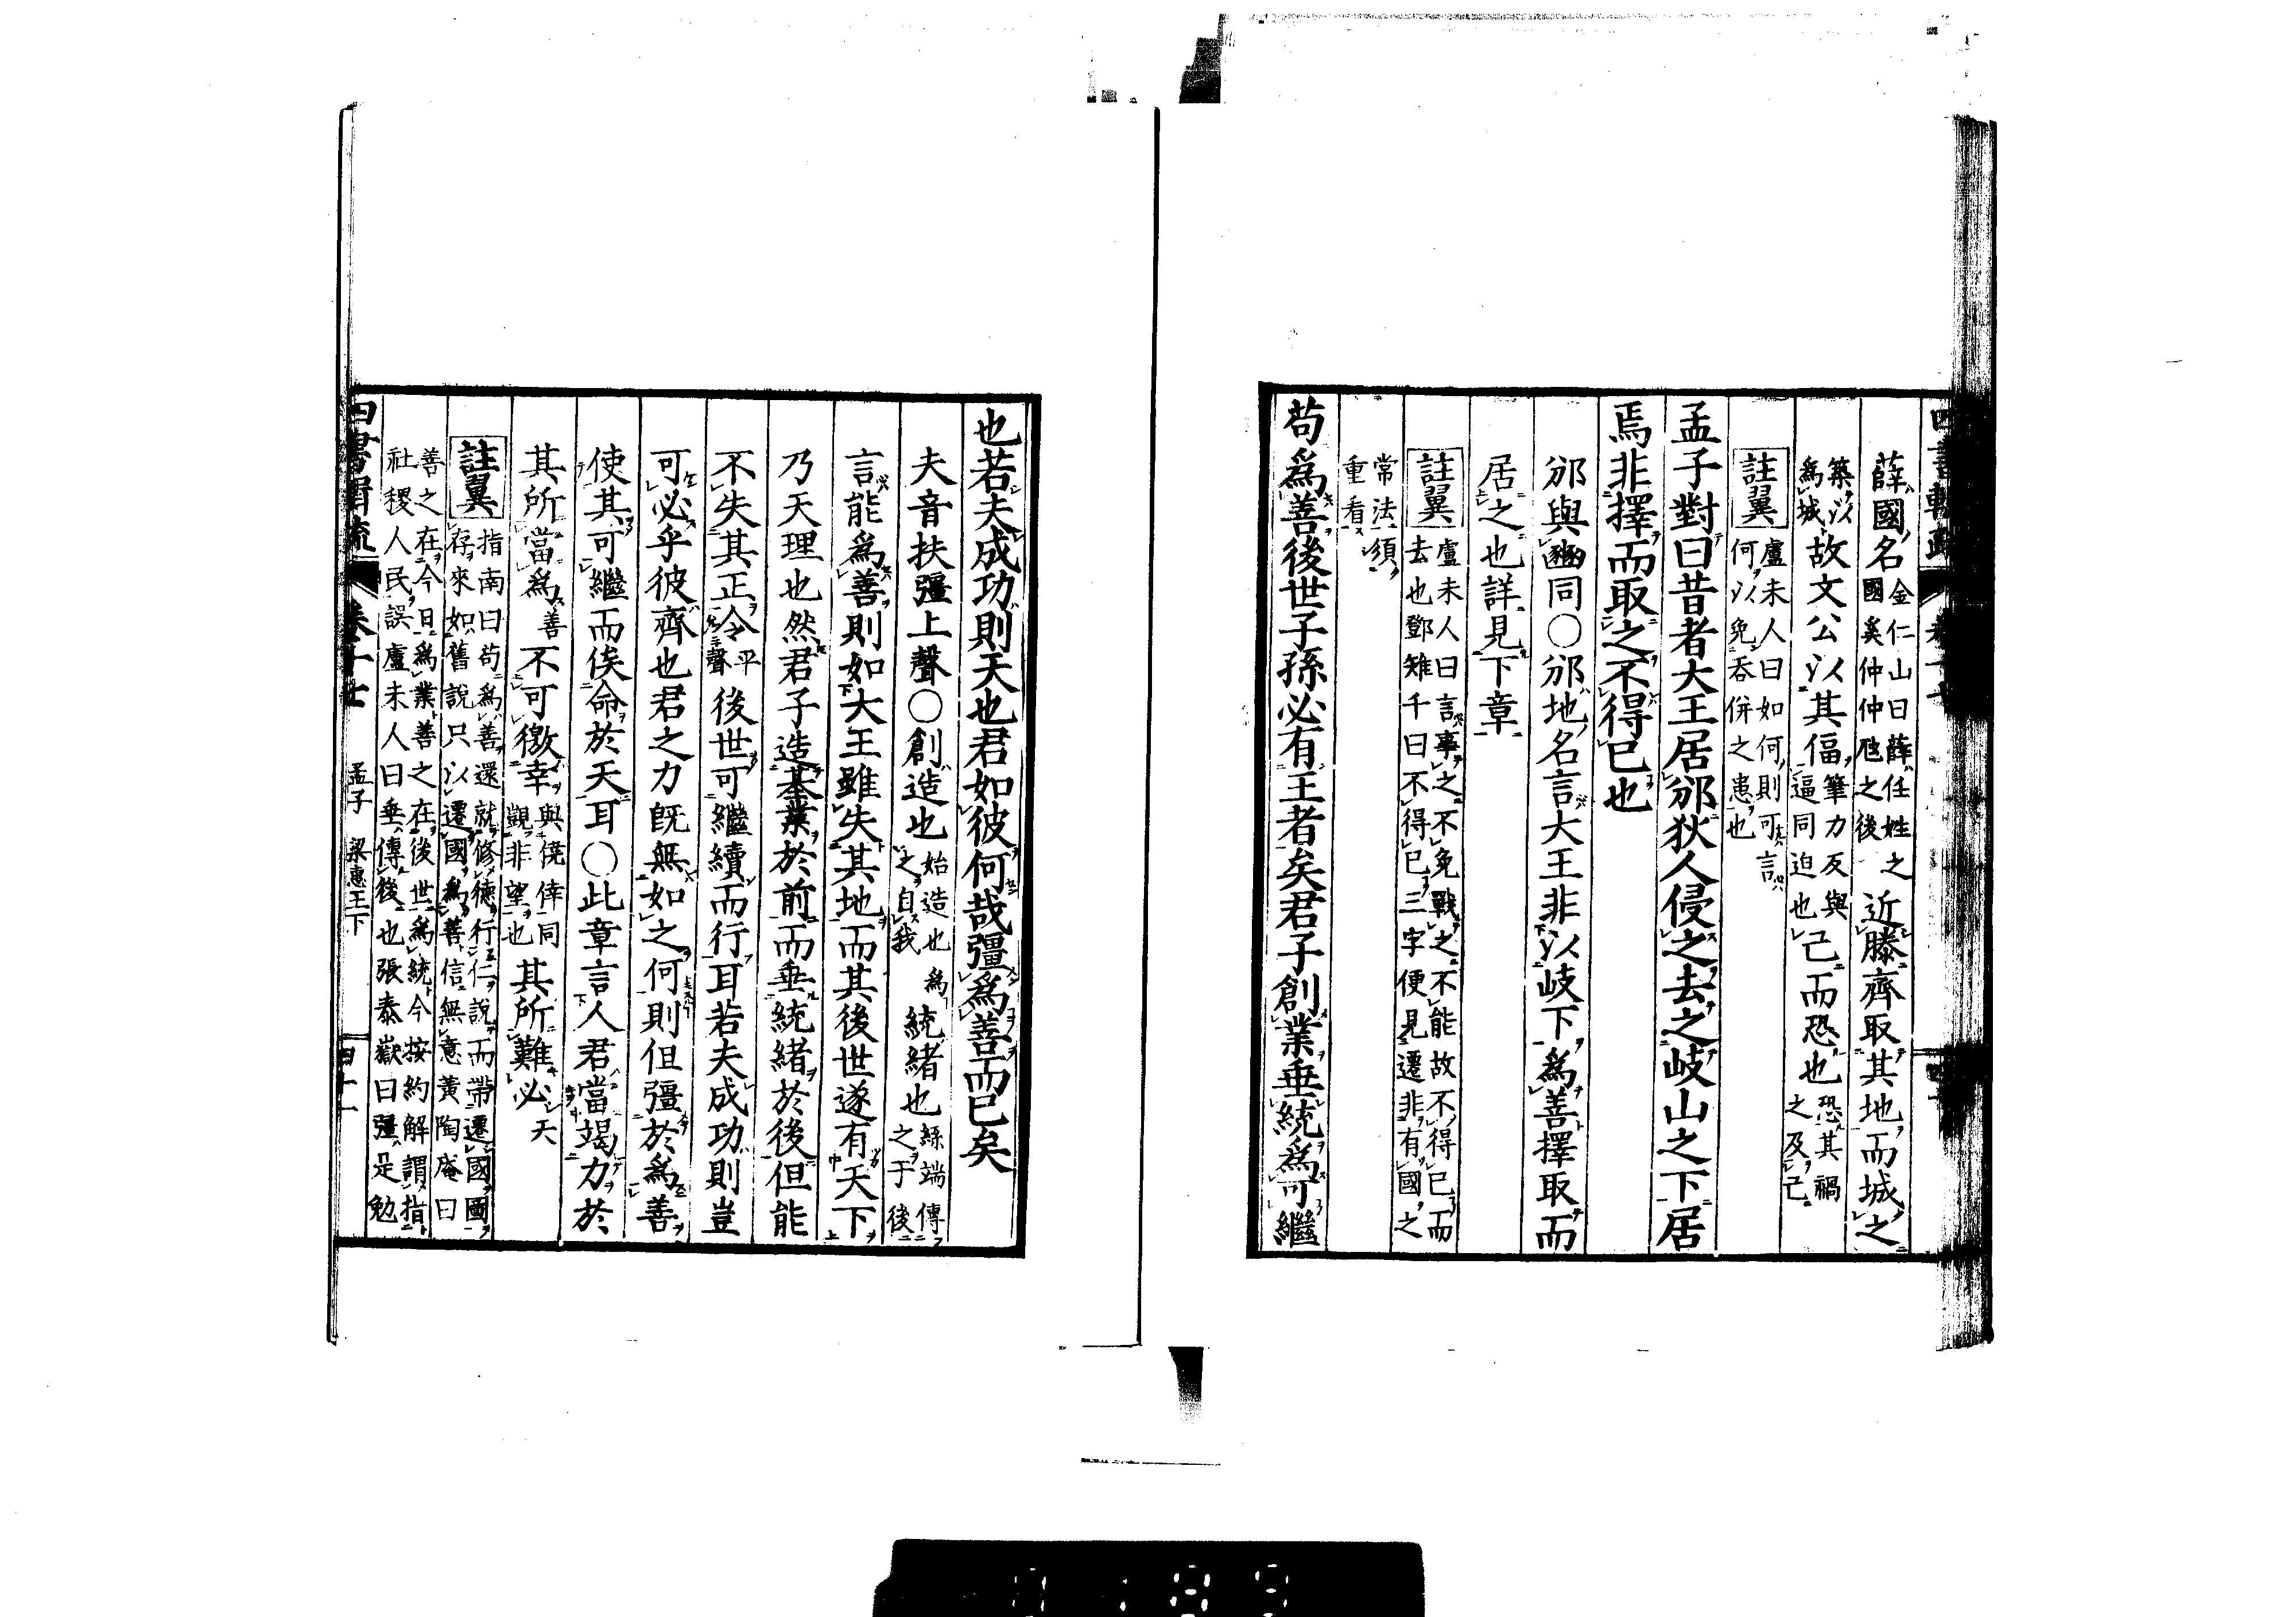 薛國名 金仁山曰薛任姓之國奚仲仲虺之後 近滕齊取其地而城之
築以爲城 故文公以其偪 筆力反與逼同迫也 己而恐也 恐其禍之及己
註翼 盧未人曰如何則可言何以免吞併之患也
孟子對曰昔者大王居邠狄人侵之去之岐山之下居
焉非擇而取之不得已也
邠與豳同〇邠地名言大王非以岐下爲善擇取而
居之也詳見下章
註翼 盧未人曰言事之不免戰之不能故不得已而去也鄧雉千曰不得已三字便見遷非有國之
常法須重看
苟爲善後世子孫必有王者矣君子創業垂統爲可繼
也若夫成功則天也君如彼何哉彊爲善而已矣
夫音扶彊上聲〇創造也 始造也爲之自我 統緒也 緜端傳之于後
言能爲善則如大王雖失其地而其後世遂有天下
乃天理也然君子造基業於前而垂統緒於後但能
不失其正令 平聲 後世可繼續而行耳若夫成功則豈
可必乎彼齊也君之力旣無如之何則但彊於爲善
使其可繼而俟命於天耳〇此章言人君當竭力於
其所當爲 善 不可徼幸 與僥倖同覬非望也 其所難必 天
註翼 指南曰苟爲善還就修德行仁說而帶遷國國存來如舊說只以遷國爲善信無意黃陶庵曰
善之在今日爲業善之在後世爲統今按約解謂指社稷人民誤盧未人曰垂傳後也張泰嶽曰彊是勉
四書輯疏 卷十七 孟子 梁惠王下 四十一